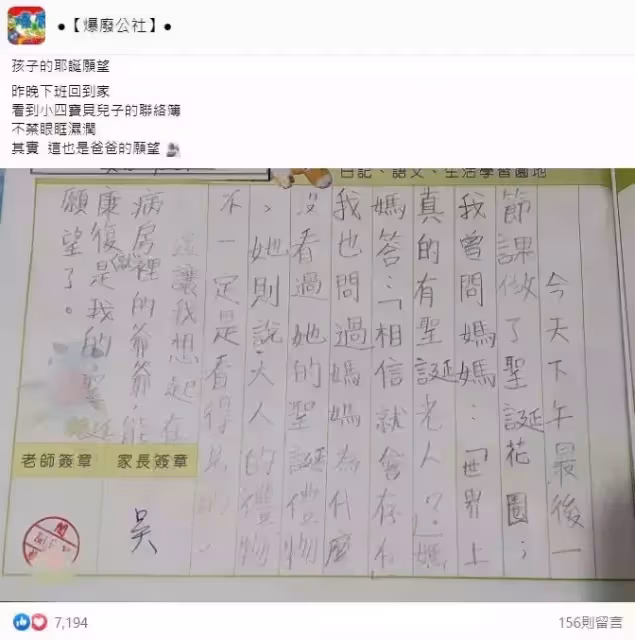 •【爆廢公社】•
孩子的耶誕願望
昨晚下班回到家
看到小四寶貝兒子的聯絡簿
不禁眼眶濕潤
其實 這也是爸爸的願望
日記、語文、生活學習園地
今天下午最後一
節課做了聖誕花圈；
我曾問媽媽：「世界上
真的有聖誕老人？」媽
媽答：「相信就會存在
我也問過媽媽為什麼
沒看過她的聖誕禮物
，她則說，大人的禮物
不一定是看得見的。
這讓我想起在
病房裡的爺爺，能
康復似是我的聖誕
願望了。
家長簽章
吳
老師簽章
閱
7,194
156則留言